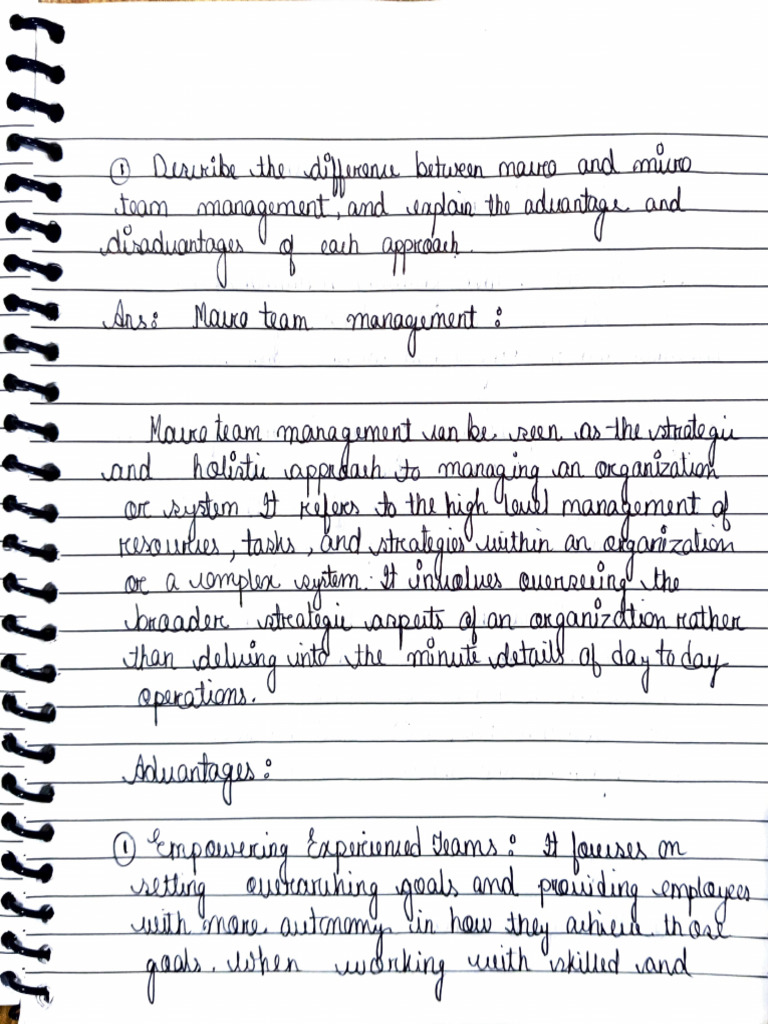 ① Describe the difference between macro and micro
team management, and explain the advantage and
disadvantages of each approach.
Ans: Macro team management :
Macro team management can be seen as the strategic
and holistic approach to managing an organization
or system It refers to the high level management of
resources, tasks, and strategies within an organization
or a complex system. It involves overseeing the
broader strategic aspects of an organization rather
than delving into the minute details of day to day
operations.
Advantages :
① Empowering Experienced Teams : It focuses on
setting overarching goals and providing employees
with more autonomy in how they achieve those
goals. When working with skilled and